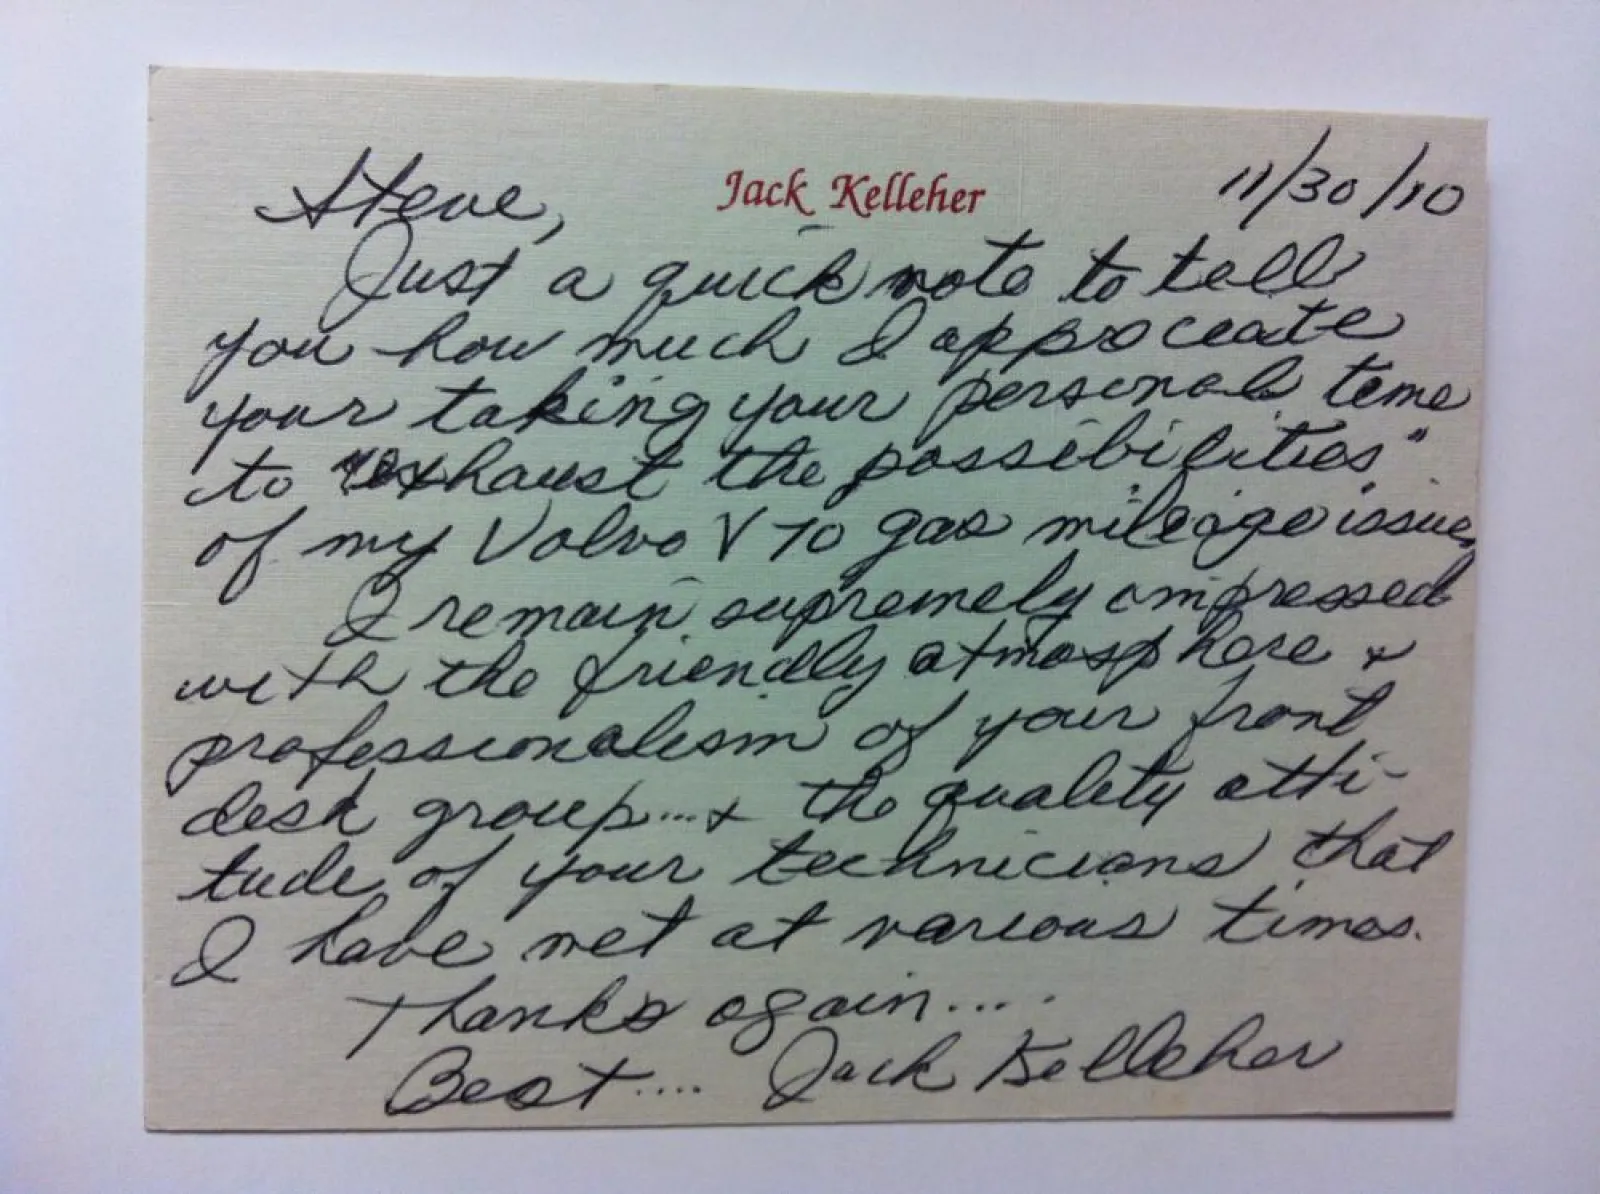 Jack Kelleher
11/30/10
Steve,
Just a quick note to tell
you how much I appreciate
your taking your personal time
to "exhaust the possibilities"
of my Volvo V70 gas mileage issue.
I remain supremely impressed
with the friendly atmosphere &
professionalism of your front
desk group...& the quality atti-
tude of your technicians that
I have met at various times.
Thanks again....
Best.... Jack Kelleher